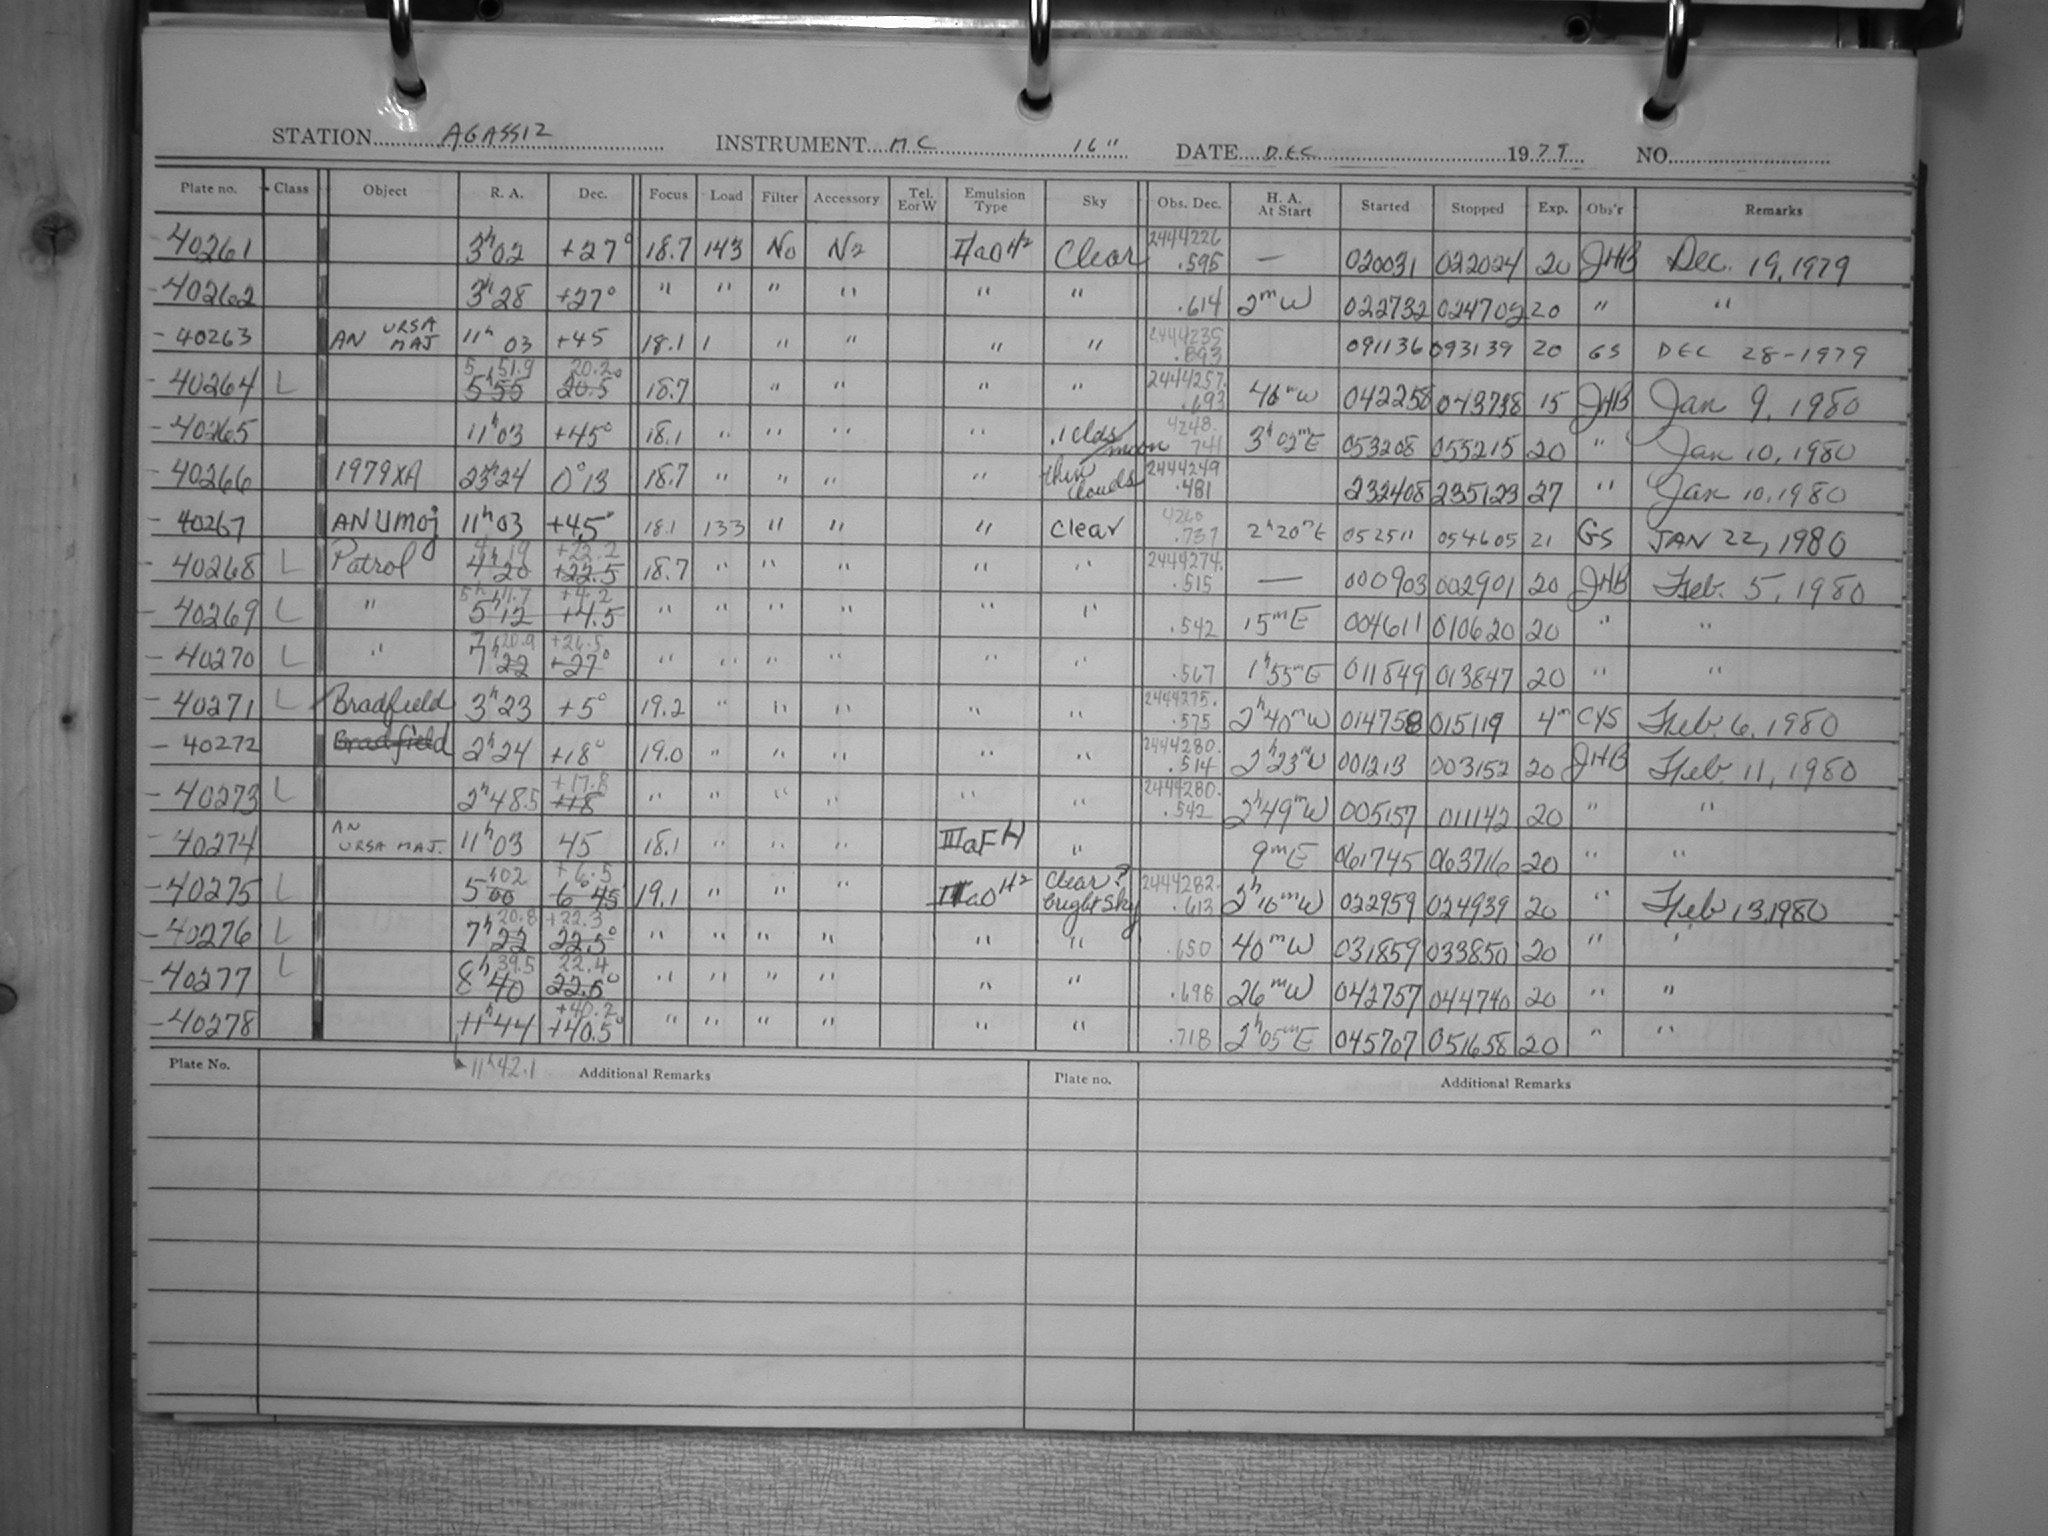 STATION AGASSIZ INSTRUMENT MC 16" DATE DEC 1979 NO.
Plate no. Class Object R. A. Dec. Focus Load Filter Accessory Tel. E or W Emulsion Type Sky Obs. Dec. H. A. At Start Started Stopped Exp. Obs'r Remarks
-40261 3h02 +27° 18.7 143 No N2 IIaOH2 Clear 2444226 .595 — 020031 022024 20 JHB Dec. 19, 1979
-40262 3h28 +27° " " " " " " .614 2mW 022732 024702 20 " "
-40263 AN URSA MAJ 11h 03 +45 18.1 1 " " " " 2444235 .893 091136 093139 20 GS DEC 28-1979
-40264 L 5 51.9 5h55 20.2 20.5° 18.7 " " " " 2444257. .693 46mW 042258 043738 15 JHB Jan 9, 1980
-40265 11h03 +45° 18.1 " " " " .1 clds/moon 4248. 741 3h02mE 053208 055215 20 " Jan 10, 1980
-40266 1979XA 23h24 0°13 18.7 " " " " thin clouds 2444249 .481 232408 235123 27 " Jan 10, 1980
-40267 AN UMaj 11h03 +45° 18.1 133 " " " clear 4260 .737 2h20mE 052511 054605 21 GS JAN 22, 1980
-40268 L Patrol 4h19 4h20 +22.2 +22.5 18.7 " " " " " 2444274. .515 — 000903 002901 20 JHB Feb. 5, 1980
-40269 L " 5h11.7 5h12 +4.2 +4.5 " " " " " " .542 15mE 004611 010620 20 " "
-40270 L " 7h20.9 22 +26.5 +27° " " " " " " .567 1h55mE 011849 013847 20 " "
-40271 L Bradfield 3h23 +5° 19.2 " " " " " 2444275. .575 2h40mW 014758 015119 4m CYS Feb. 6, 1980
-40272 Bradfield 2h24 +18° 19.0 " " " " " 2444280. .514 2h23mW 001213 003152 20 JHB Feb. 11, 1980
-40273 L 2h48.5 +17.8 +18° " " " " " " 2444280. .542 2h49mW 005157 011142 20 " "
-40274 AN URSA MAJ. 11h03 45 18.1 " " " IIIaFH " 9mE 061745 063716 20 " "
-40275 L 5h02 00 +6.5 6°45 19.1 " " " IIaOH2 Clear? bright sky 2444282. .613 2h10mW 022959 024939 20 " Feb 13, 1980
-40276 L 7h20.8 22 +22.3 22.5° " " " " " " .650 40mW 031859 033850 20 " "
-40277 L 8h39.5 40 22.4 22.5° " " " " " " .698 26mW 042757 044740 20 " "
-40278 11h44 +40.2 +40.5° " " " " " " .718 2h05mE 045707 051658 20 " "
11h42.1
Plate No. Additional Remarks Plate no. Additional Remarks